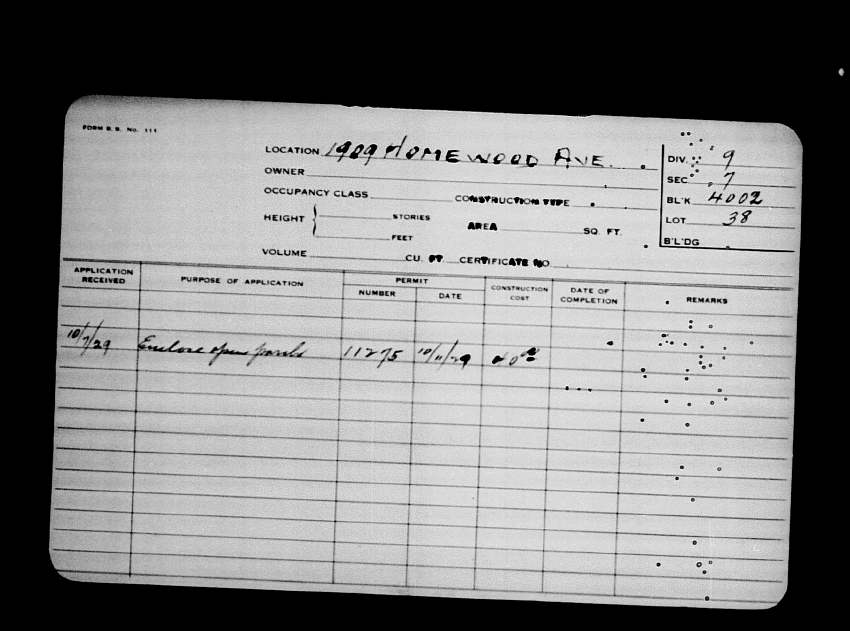 FORM B.B. No. 111
LOCATION 1909 HOMEWOOD AVE.
OWNER
OCCUPANCY CLASS CONSTRUCTION TYPE
HEIGHT STORIES AREA SQ. FT.
FEET
VOLUME CU. FT. CERTIFICATE NO.
DIV. 9
SEC. 7
BL'K 4002
LOT 38
B'L'DG
APPLICATION RECEIVED PURPOSE OF APPLICATION PERMIT CONSTRUCTION COST DATE OF COMPLETION REMARKS
NUMBER DATE
10/7/29 Enclose open porch 11275 10/11/29 40.00